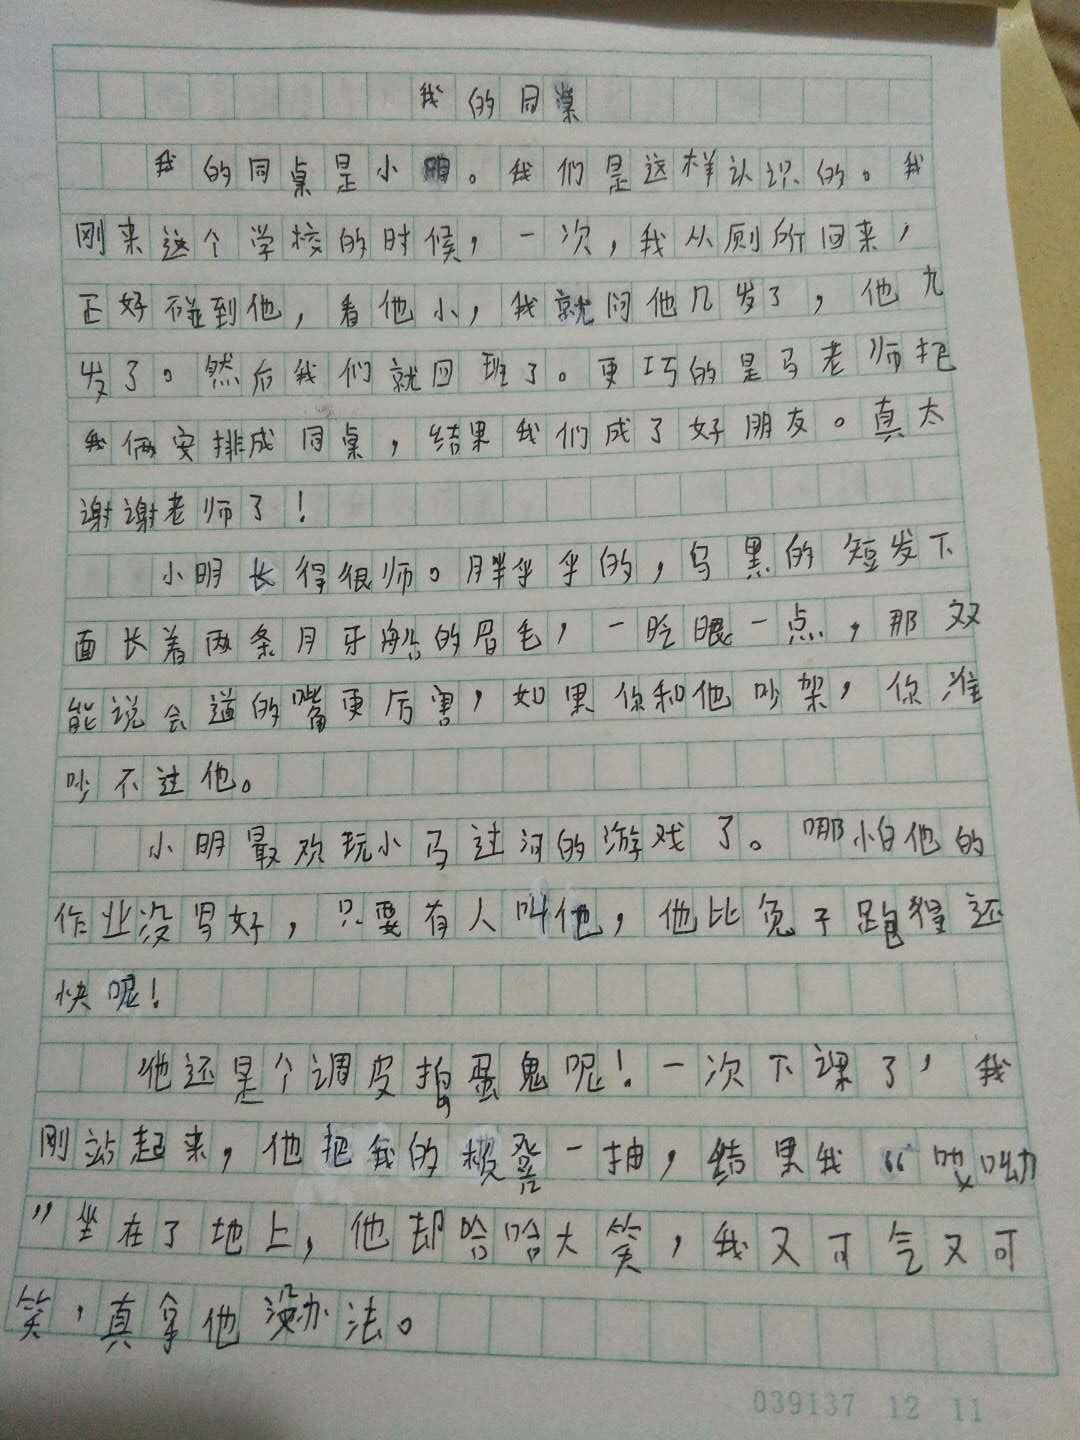 我的同桌
我的同桌是小明。我们是这样认识的。我
刚来这个学校的时候，一次，我从厕所回来，
正好碰到他，看他小，我就问他几岁了，他九
岁了。然后我们就回班了。更巧的是马老师把
我俩安排成同桌，结果我们成了好朋友。真太
谢谢老师了！
小明长得很师。胖乎乎的，乌黑的短发下
面长着两条月牙船的眉毛，一眨眼一点，那双
能说会道的嘴更厉害，如果你和他吵架，你准
吵不过他。
小明最欢玩小马过河的游戏了。哪怕他的
作业没写好，只要有人叫他，他比兔子跑得还
快呢！
他还是个调皮捣蛋鬼呢！一次下课了，我
刚站起来，他把我的板凳一抽，结果我“哎呦
”坐在了地上，他却哈哈大笑，我又可气又可
笑，真拿他没办法。
039137 12 11